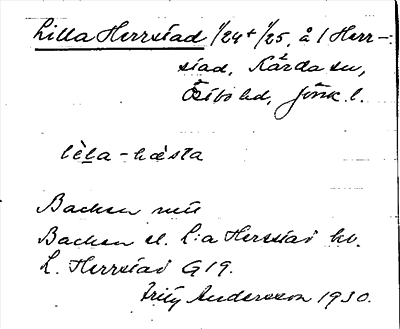 Lilla Herrstad 1/24 + 1/25, å 1 Herr-
stad, Kärda sn,
Östbo hd, Jönk. l.
lèla-hæsta
Backen
Backen el. L:a Herrstad kv.
L. Herrstad G19.
Fritz Andersson 1930.